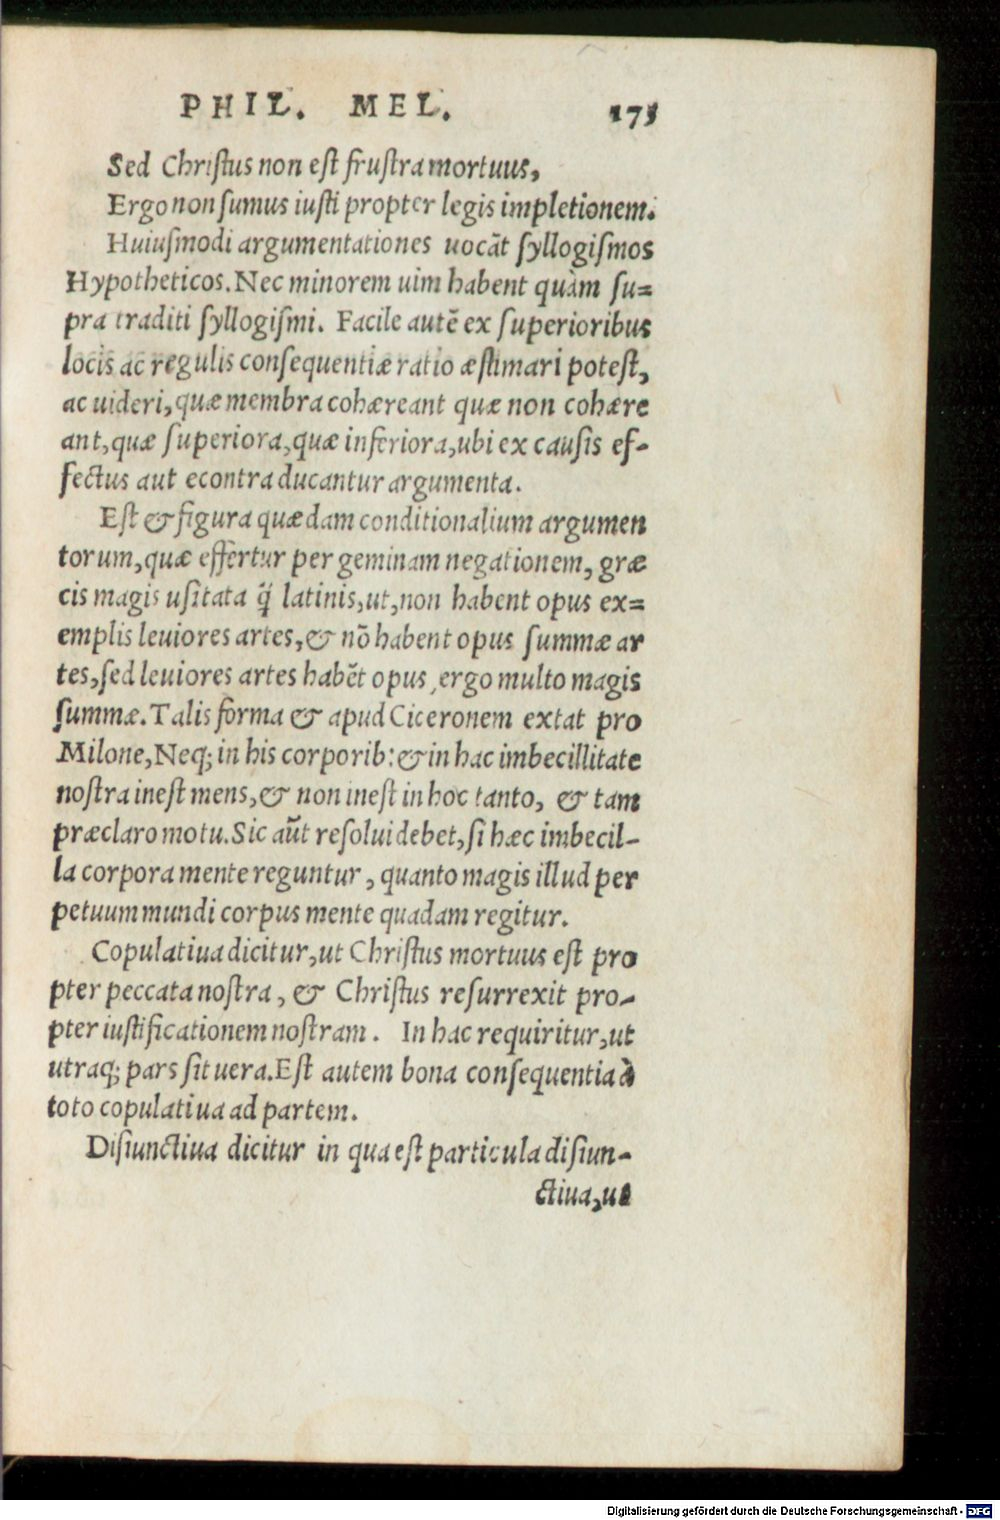 PHIL. MEL. 175
Sed Christus non est frustra mortuus,
Ergo non sumus iusti propter legis impletionem.
Huiusmodi argumentationes uocāt syllogismos
Hypotheticos. Nec minorem uim habent quàm su=
pra traditi syllogismi. Facile autē ex superioribus
locis ac regulis consequentiæ ratio æstimari potest,
ac uideri, quæ membra cohæreant quæ non cohære
ant, quæ superiora, quæ inferiora, ubi ex causis ef-
fectus aut econtra ducantur argumenta.
Est & figura quædam conditionalium argumen
torum, quæ effertur per geminam negationem, græ
cis magis usitata q̃ latinis, ut, non habent opus ex=
emplis leuiores artes, & nō habent opus summæ ar
tes, sed leuiores artes habēt opus, ergo multo magis
summæ. Talis forma & apud Ciceronem extat pro
Milone, Neq; in his corporib: & in hac imbecillitate
nostra inest mens, & non inest in hoc tanto, & tam
præclaro motu. Sic aūt resolui debet, si hæc imbecil-
la corpora mente reguntur, quanto magis illud per
petuum mundi corpus mente quadam regitur.
Copulatiua dicitur, ut Christus mortuus est pro
pter peccata nostra, & Christus resurrexit pro-
pter iustificationem nostram. In hac requiritur, ut
utraq; pars sit uera. Est autem bona consequentia à
toto copulatiua ad partem.
Disiunctiua dicitur in qua est particula disiun-
ctiua, ut
Digitalisierung gefördert durch die Deutsche Forschungsgemeinschaft - DFG